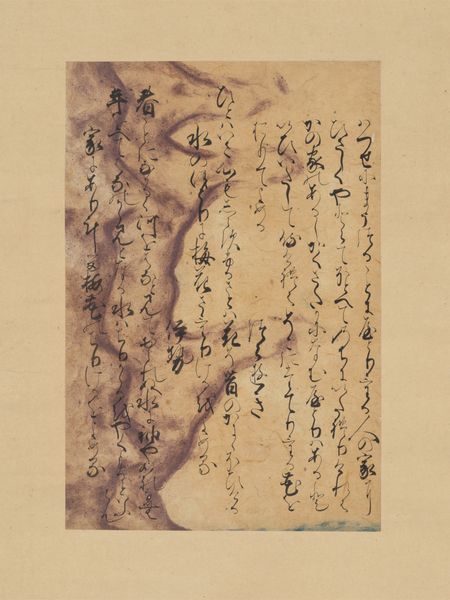 はつせにまうつることにやとりける人の家に
ひさしくやとらてほとへてのちにいたれりけれは
かの家のあるしかくさたかになむやとりはあると
いひいたして侍けれはそこにたてりける花を
をりてよめる
つらゆき
ひとはいさ心もしらすふるさとは花そ昔のかににほひける
水のほとりに梅花さけりけるをよめる
伊勢
春ことになかるゝ河を花と見てをられぬ水に袖やぬれなむ
年をへて花のかゝみとなる水はちりかゝるをやくもるといふらむ
家にありける梅花のちりけるをよめる